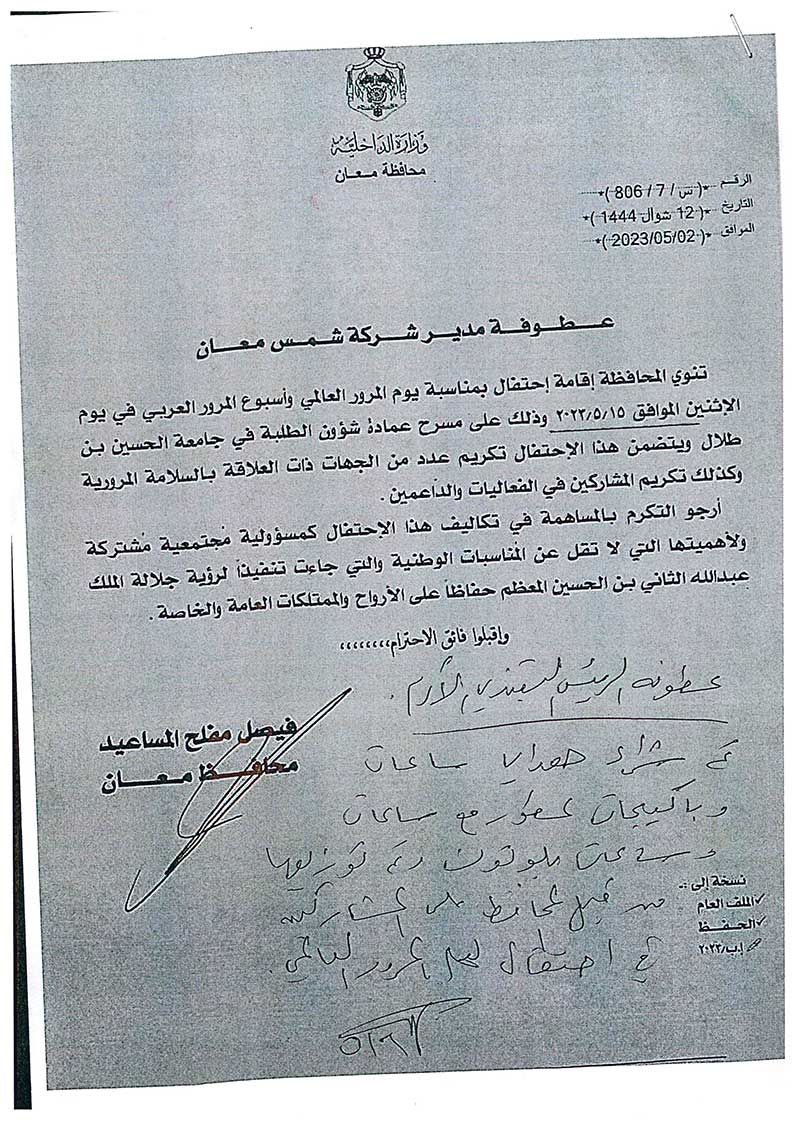 وزارة الداخلية
محافظة معان
الرقم *( س / 7 / 806 )*
التاريخ *( 12 شوال 1444 )*
الموافق *( 2023/05/02 )*
عطوفة مدير شركة شمس معان
تنوي المحافظة إقامة إحتفال بمناسبة يوم المرور العالمي وأسبوع المرور العربي في يوم
الإثنين الموافق ٢٠٢٣/٥/١٥ وذلك على مسرح عمادة شؤون الطلبة في جامعة الحسين بن
طلال ويتضمن هذا الإحتفال تكريم عدد من الجهات ذات العلاقة بالسلامة المرورية
وكذلك تكريم المشاركين في الفعاليات والداعمين .
أرجو التكرم بالمساهمة في تكاليف هذا الإحتفال كمسؤولية مُجتمعية مُشتركة
ولأهميتها التي لا تقل عن المناسبات الوطنية والتي جاءت تنفيذاً لرؤية جلالة الملك
عبدالله الثاني بن الحسين المعظم حفاظاً على الأرواح والممتلكات العامة والخاصة .
واقبلوا فائق الاحترام,,,,,,,,
عطوفة الرئيس التنفيذي الأكرم .
فيصل مفلح المساعيد
محافظ معان
تم شراء هدايا ساعات
وباكيجات عطور مع ساعات
وسماعات بلوتوث وتم توزيعها
من قبل المحافظ على المشاركين
في احتفال يوم المرور العالمي .
نسخة إلى :-
الملف العام
الحفظ
إ.ب/٢٠٢٣